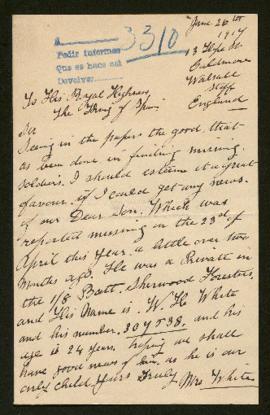 June 26th
1917
3310
A
Pedir informes
Que se hace así
Devolver
3 Hope St
Caldmore
Walsall
Staff
England
To His Royal Highness
The King of Spain
Sir
Seeing in the paper the good that
as been done in finding missing
soldiers. I should esteem it a great
favour if I could get any news
of our Dear Son. Which was
reported missing on the 23rd of
April this year. a little over two
months ago. He was a Private in
the 1/8 Batt. Sherwood Foresters
and His Name is W. H. White
and his number 307538. and his
age is 24 years. Hoping we shall
have good news of him as he is our
only child. Yours Truly Mrs White